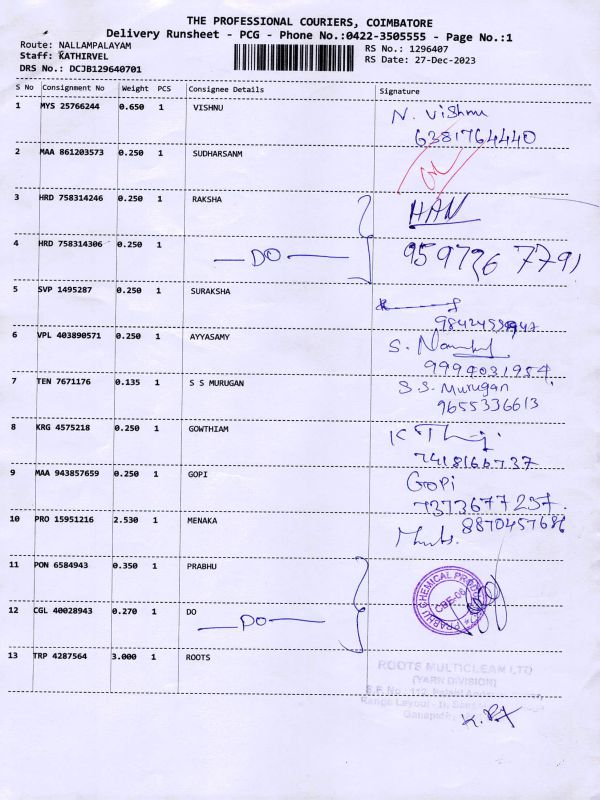 THE PROFESSIONAL COURIERS, COIMBATORE
Delivery Runsheet - PCG - Phone No.:0422-3505555 - Page No.:1
Route: NALLAMPALAYAM
RS No.: 1296407
Staff: KATHIRVEL
RS Date: 27-Dec-2023
DRS No.: DCJB129640701
S No Consignment No Weight PCS Consignee Details Signature
1 MYS 25766244 0.650 1 VISHNU N. Vishnu
6381764440
2 MAA 861203573 0.250 1 SUDHARSANM
3 HRD 758314246 0.250 1 RAKSHA HAN
4 HRD 758314306 0.250 1 — DO — 9597267791
5 SVP 1495287 0.250 1 SURAKSHA
6 VPL 403890571 0.250 1 AYYASAMY S.
9994031954
7 TEN 7671176 0.135 1 S S MURUGAN S.S. Murugan
9655336613
8 KRG 4575218 0.250 1 GOWTHIAM
7418166737
9 MAA 943857659 0.250 1 GOPI Gopi
7373677237.
10 PRO 15951216 2.530 1 MENAKA 8870457686
11 PON 6584943 0.350 1 PRABHU
PRABHU CHEMICAL PRODUCTS CBE-06
12 CGL 40028943 0.270 1 DO
— DO —
13 TRP 4287564 3.000 1 ROOTS
ROOTS MULTICLEAN LTD
(YARN DIVISION)